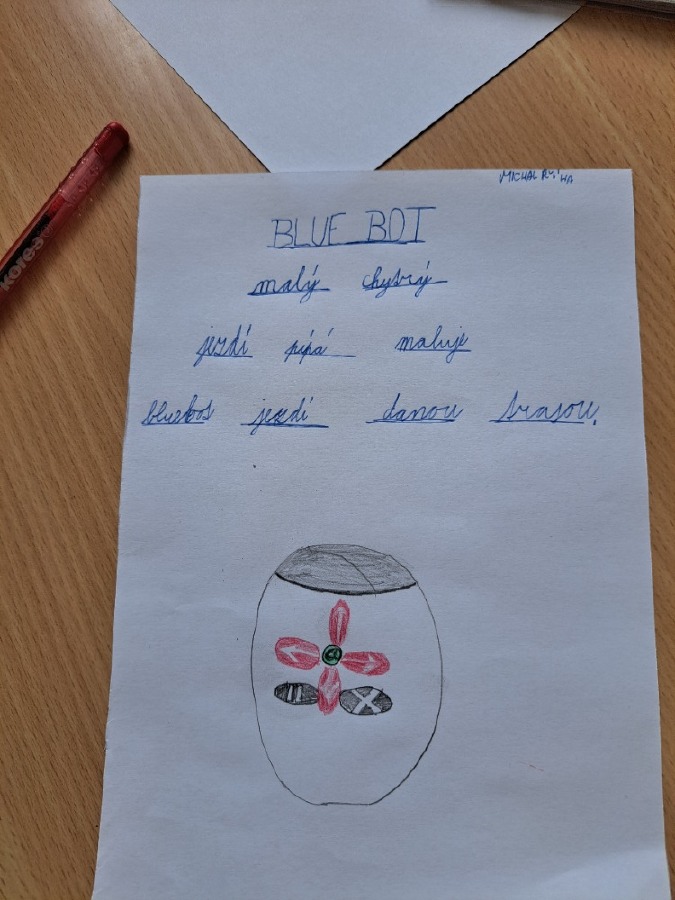 MICHAL ŘÍHA
BLUE BOT
malý chytrý
jezdí pípá maluje
bluebot jezdí danou trasou.
Kores